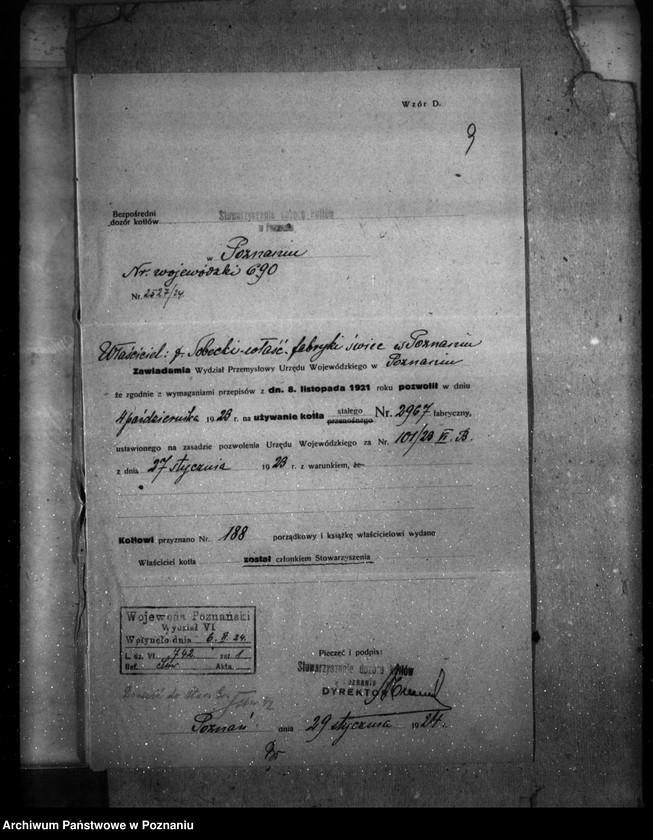 Wzór D.
9
Bezpośredni
dozór kotłów
Stowarzyszenie dozoru kotłów
w Poznaniu
w Poznaniu
Nr. wojewódzki 690
Nr. 2527/24.
Właściciel: Sobecki - właśc. fabryki świec w Poznaniu
Zawiadamia Wydział Przemysłowy Urzędu Wojewódzkiego w Poznaniu
że zgodnie z wymaganiami przepisów z dn. 8. listopada 1921 roku pozwolił w dniu
4 października 1923 r. na używanie kotła stałego przenośnego Nr. 2967 fabryczny,
ustawionego na zasadzie pozwolenia Urzędu Wojewódzkiego za Nr. 101/23 VI. B.
z dnia 27 stycznia 1923 r. z warunkiem, że
Kotłowi przyznano Nr. 188 porządkowy i książkę właścicielowi wydane
Właściciel kotła został członkiem Stowarzyszenia
Wojewoda Poznański
Wydział VI
Wpłynęło dnia 6. II. 24.
L. dz. VI 742 zał. 1
Ref. Akta.
Pieczęć i podpis:
Stowarzyszenie dozoru kotłów
w POZNANIU
DYREKTOR
Poznań dnia 29 stycznia 1924.
Archiwum Państwowe w Poznaniu